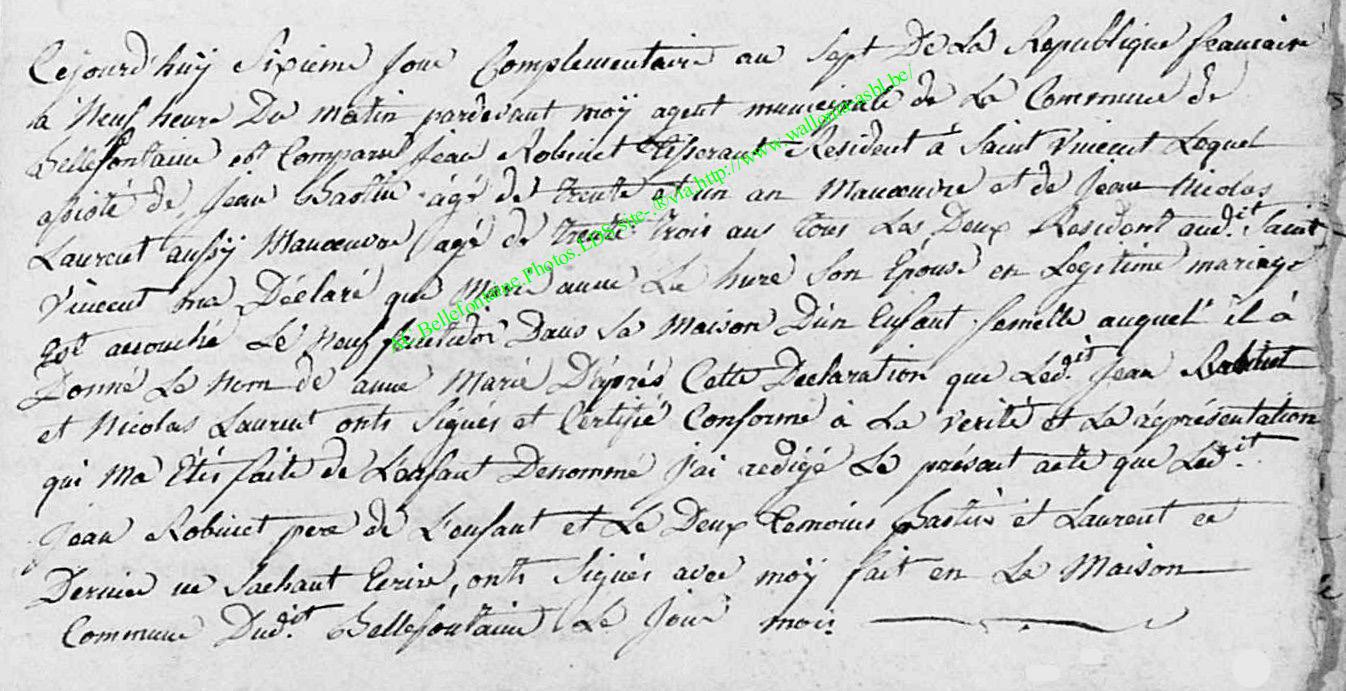 Cejourd huÿ Sixieme Jour Complementaire au Sept De La Republique francaise
à Neuf heure Du Matin pardevant moÿ agent municipale de La Commune de
Bellefontaine est Comparu Jean Robinet Tisserant Resident à Saint Vincent Lequel
assisté de Jean Bastin agé de trente et un an Manœuvre et de Jean Nicolas
Laurent aussÿ Manœuvre agé de trente trois ans tous Les Deux Resident aud.it Saint
Vincent ma Déclaré que Marie anne La hure Son Epouse en Legitime mariage
Est accouché Le Neuf fructidor Dans Sa Maison D'un Enfant femelle auquel il à
Donné Le Nom de anne Marie D'après Cette Declaration que Led.it Jean Robinet
et Nicolas Laurent onts Signés et Certifié Conforme à La verité et La représentation
qui Ma Etés faite de Lenfant Denommé J'ai redigé Le présent acte que Led.it
Jean Robinet pere de L'enfant et Le Deux temoins Bastin et Laurent ce
Dernier ne Sachant Ecrire, onts Signés avec moÿ fait en La Maison
Commune Dud.it Bellefontaine Le Jour mois
AE.Bellefontaine.Photos.LDS.site-.®via.http://www.wallonia-asbl.be/